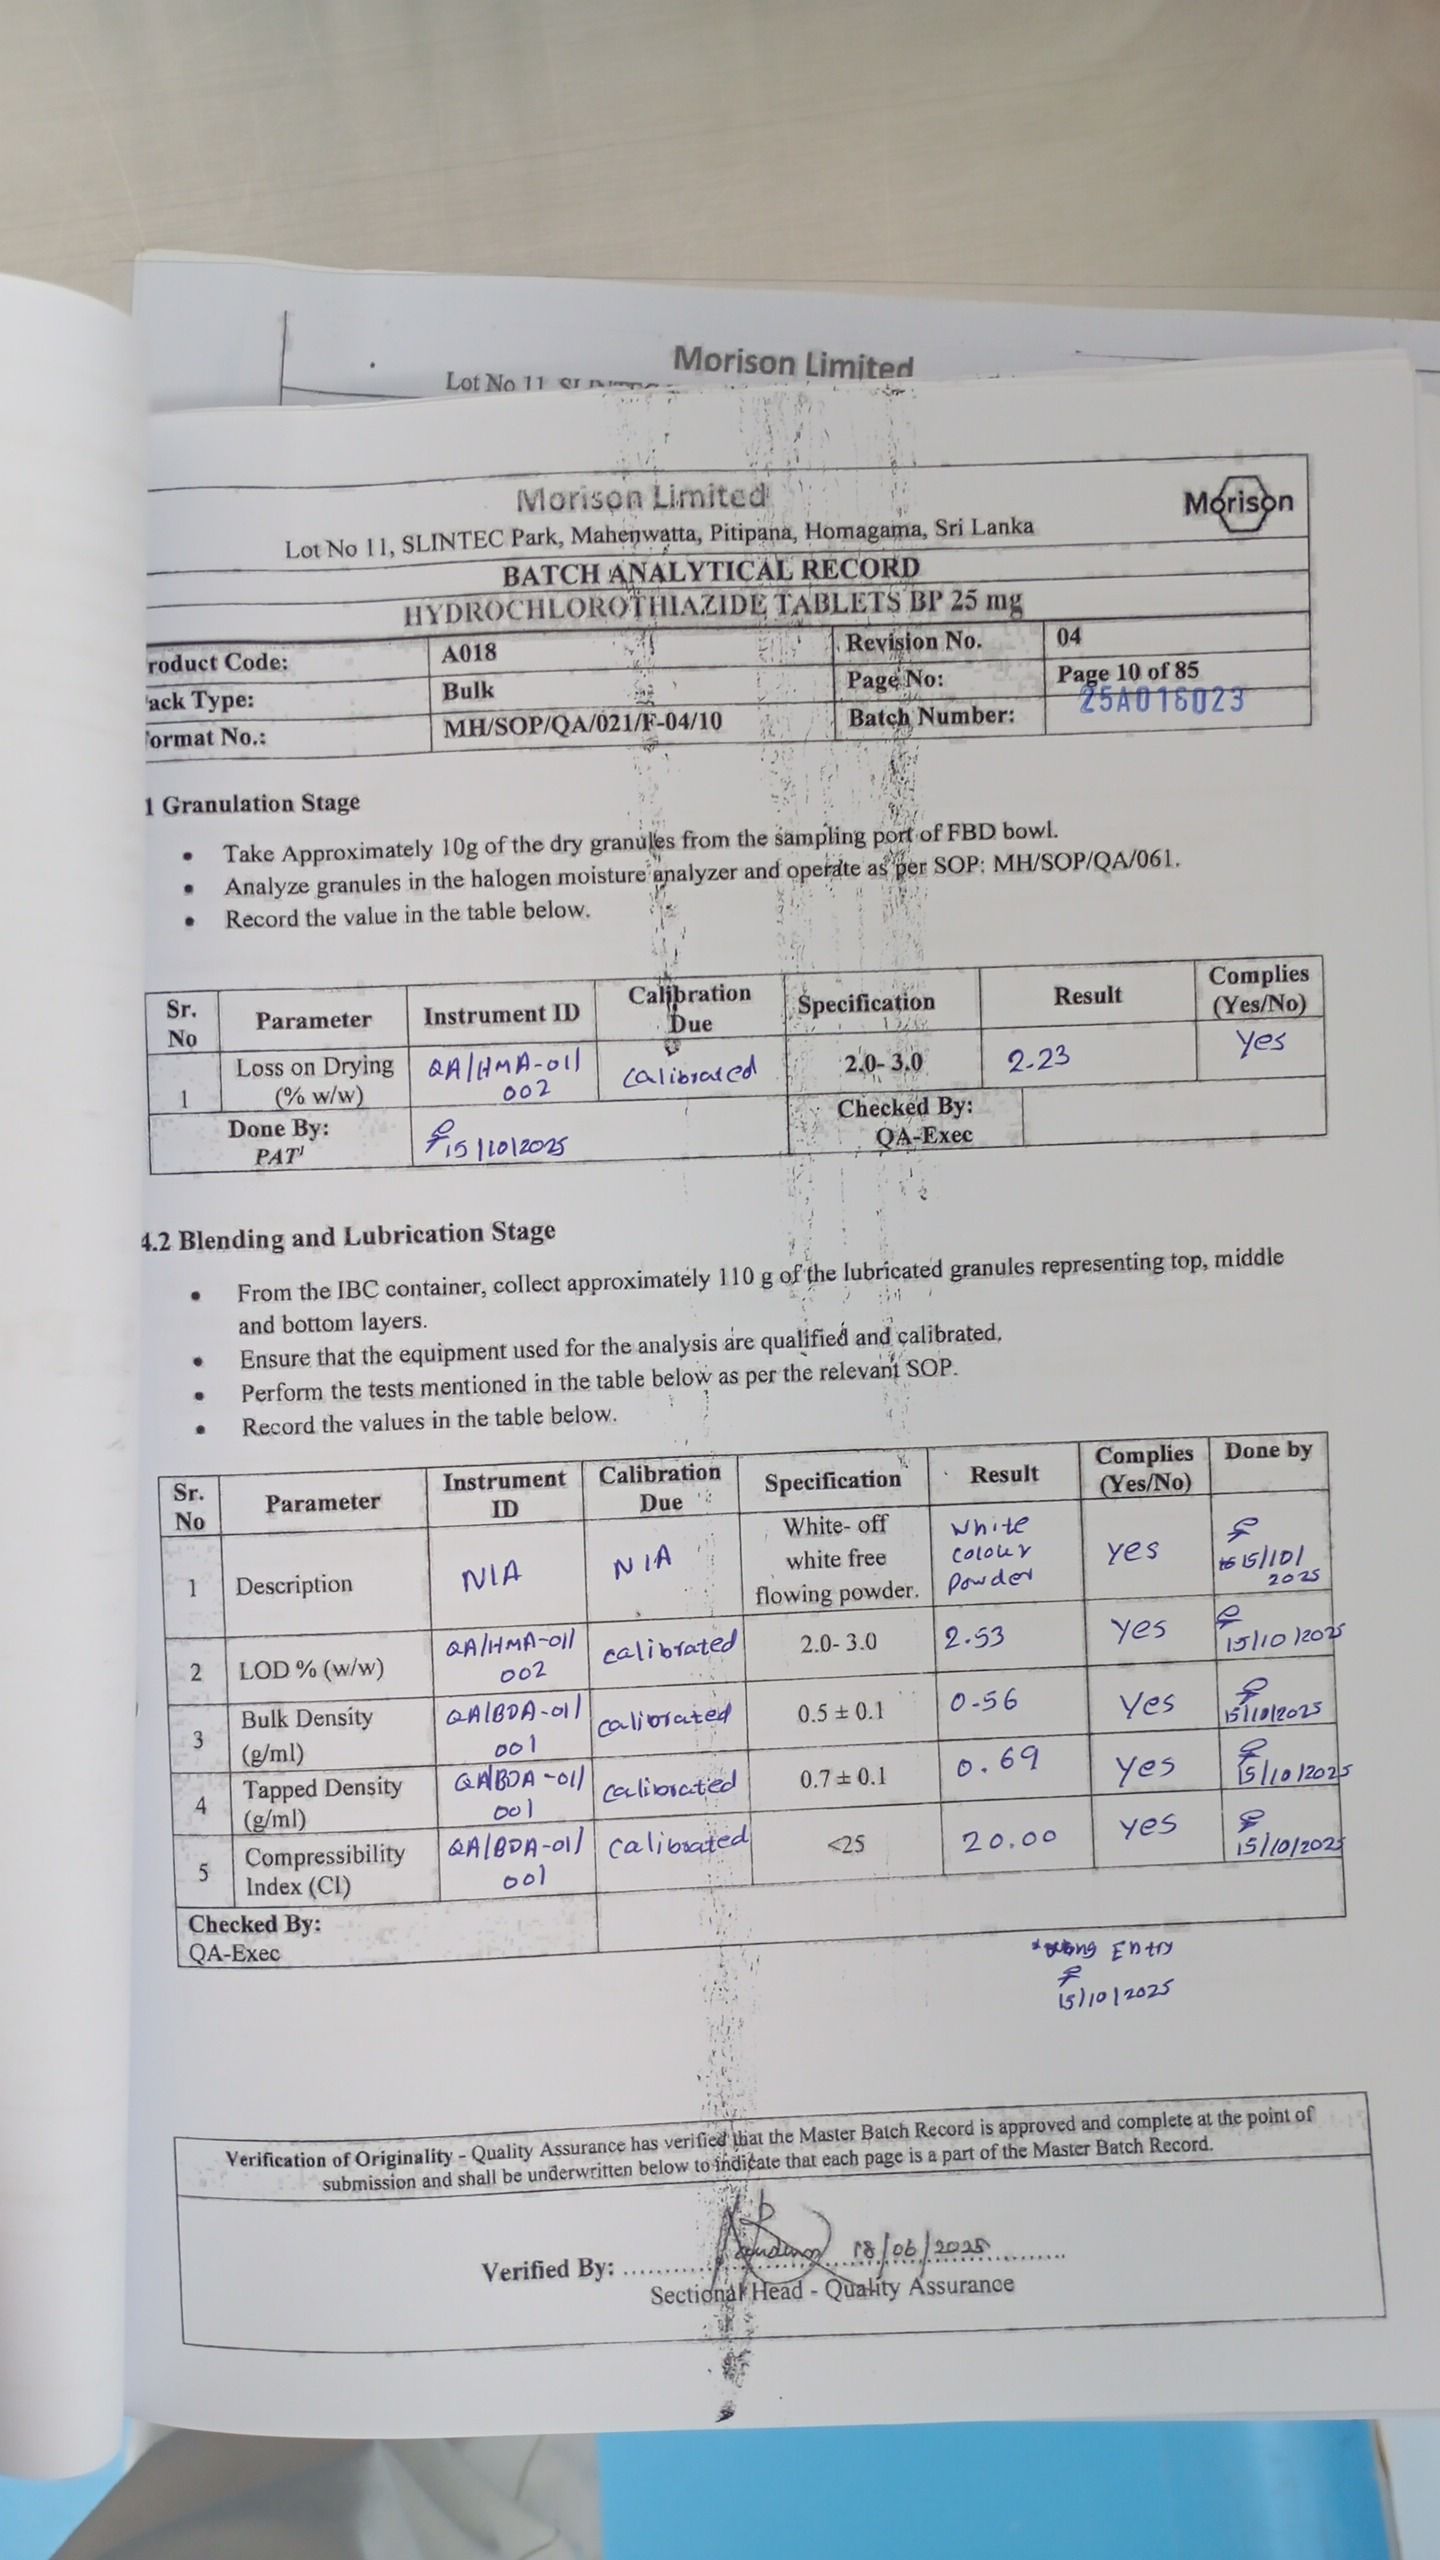 Morison Limited
Lot No 11
Morison Limited
Morison
Lot No 11, SLINTEC Park, Mahenwatta, Pitipana, Homagama, Sri Lanka
BATCH ANALYTICAL RECORD
HYDROCHLOROTHIAZIDE TABLETS BP 25 mg
roduct Code: A018 Revision No. 04
ack Type: Bulk Page No: Page 10 of 85
ormat No.: MH/SOP/QA/021/F-04/10 Batch Number: 25A018023
1 Granulation Stage
• Take Approximately 10g of the dry granules from the sampling port of FBD bowl.
• Analyze granules in the halogen moisture analyzer and operate as per SOP: MH/SOP/QA/061.
• Record the value in the table below.
Sr. No Parameter Instrument ID Calibration Due Specification Result Complies (Yes/No)
1 Loss on Drying (% w/w) QA/HMA-01/002 calibrated 2.0- 3.0 2.23 Yes
Done By: PAT 15/10/2025 Checked By: QA-Exec
4.2 Blending and Lubrication Stage
• From the IBC container, collect approximately 110 g of the lubricated granules representing top, middle
and bottom layers.
• Ensure that the equipment used for the analysis are qualified and calibrated.
• Perform the tests mentioned in the table below as per the relevant SOP.
• Record the values in the table below.
Sr. No Parameter Instrument ID Calibration Due Specification Result Complies (Yes/No) Done by
1 Description N/A N/A White- off white free flowing powder. White colour Powder Yes 15/10/2025
2 LOD % (w/w) QA/HMA-01/002 calibrated 2.0- 3.0 2.53 Yes 15/10/2025
3 Bulk Density (g/ml) QA/BDA-01/001 calibrated 0.5 ± 0.1 0.56 Yes 15/10/2025
4 Tapped Density (g/ml) QA/BDA-01/001 calibrated 0.7 ± 0.1 0.69 Yes 15/10/2025
5 Compressibility Index (CI) QA/BDA-01/001 calibrated <25 20.00 Yes 15/10/2025
Checked By:
QA-Exec
Entry
15/10/2025
Verification of Originality - Quality Assurance has verified that the Master Batch Record is approved and complete at the point of
submission and shall be underwritten below to indicate that each page is a part of the Master Batch Record.
Verified By: 18/06/2025
Sectional Head - Quality Assurance